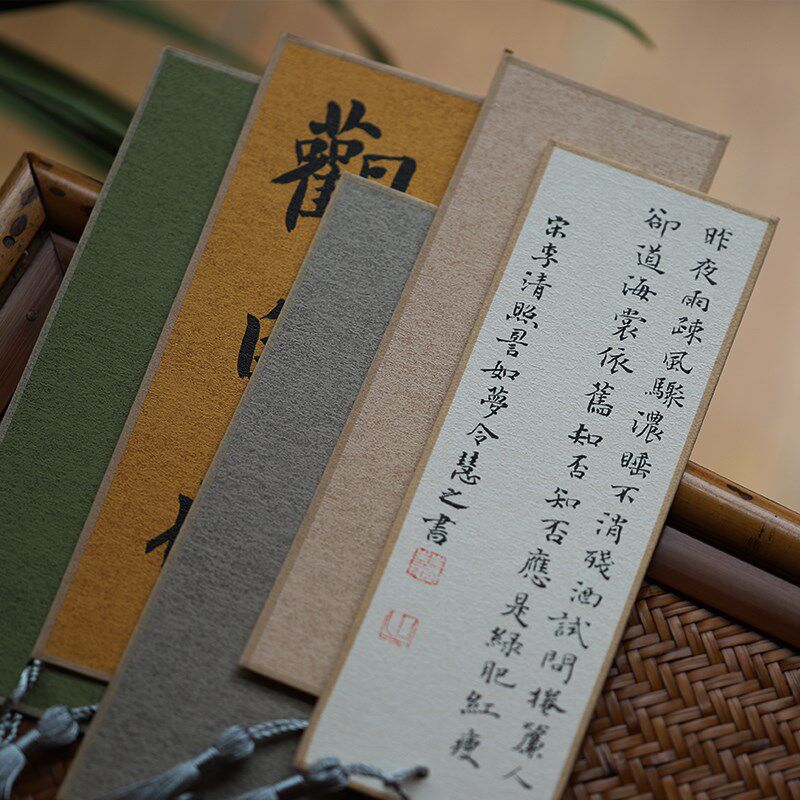 昨夜雨疎風驟濃睡不消殘酒試問捲簾人
卻道海裳依舊知否知否應是綠肥紅瘦
宋李清照詞如夢令慧之書
觀